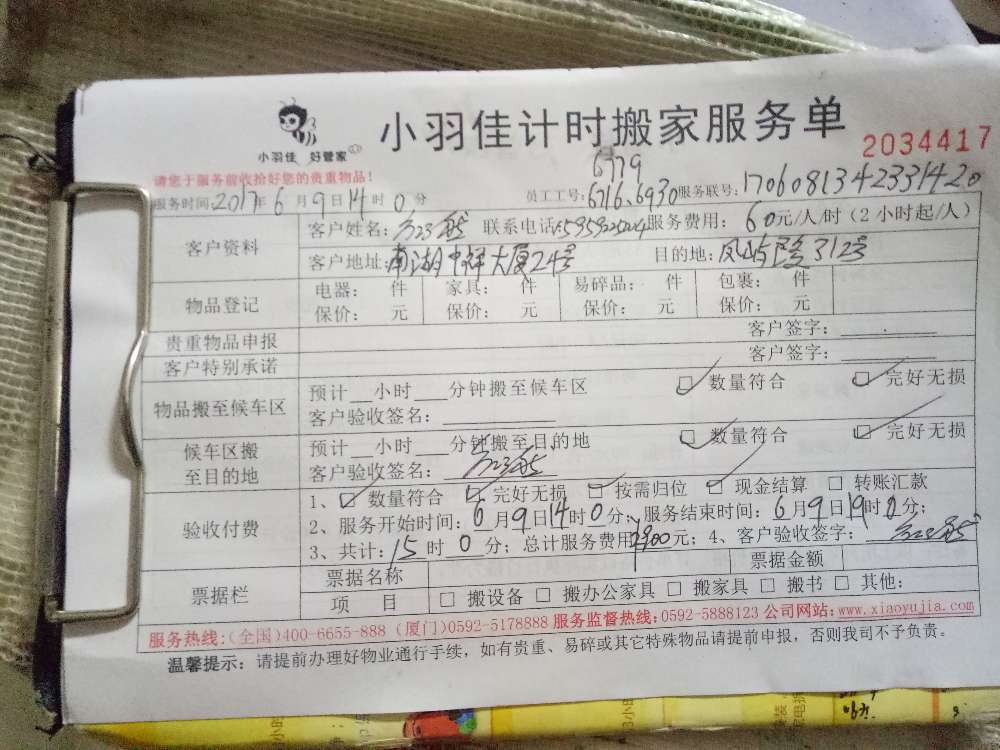 小羽佳计时搬家服务单
小羽佳 好管家
2034417
请您于服务前收拾好您的贵重物品!
6779
服务时间:2017年6月9日14时0分 员工工号:6716.6930 服务联号:1706081342331420
客户资料
客户姓名: 联系电话: 服务费用:60元/人/时(2小时起/人)
客户地址:南湖中祥大厦24号 目的地:凤屿路312号
物品登记
电器: 件 家具: 件 易碎品: 件 包裹: 件
保价: 元 保价: 元 保价: 元 保价: 元
贵重物品申报 客户签字:
客户特别承诺 客户签字:
物品搬至候车区
预计__小时___分钟搬至候车区 数量符合 完好无损
客户验收签名:
候车区搬至目的地
预计__小时___分钟搬至目的地 数量符合 完好无损
客户验收签名:
验收付费
1、数量符合 完好无损 按需归位 现金结算 转账汇款
2、服务开始时间:6月9日14时0分;服务结束时间:6月9日19时0分;
3、共计:15时0分;总计服务费用900元;4、客户验收签字:
票据栏
票据名称 票据金额
项 目 □ 搬设备 □ 搬办公家具 □ 搬家具 □ 搬书 □ 其他:
服务热线:(全国)400-6655-888 (厦门)0592-5178888 服务监督热线:0592-5888123 公司网站:www.xiaoyujia.com
温馨提示:请提前办理好物业通行手续,如有贵重、易碎或其它特殊物品请提前申报,否则我司不予负责。